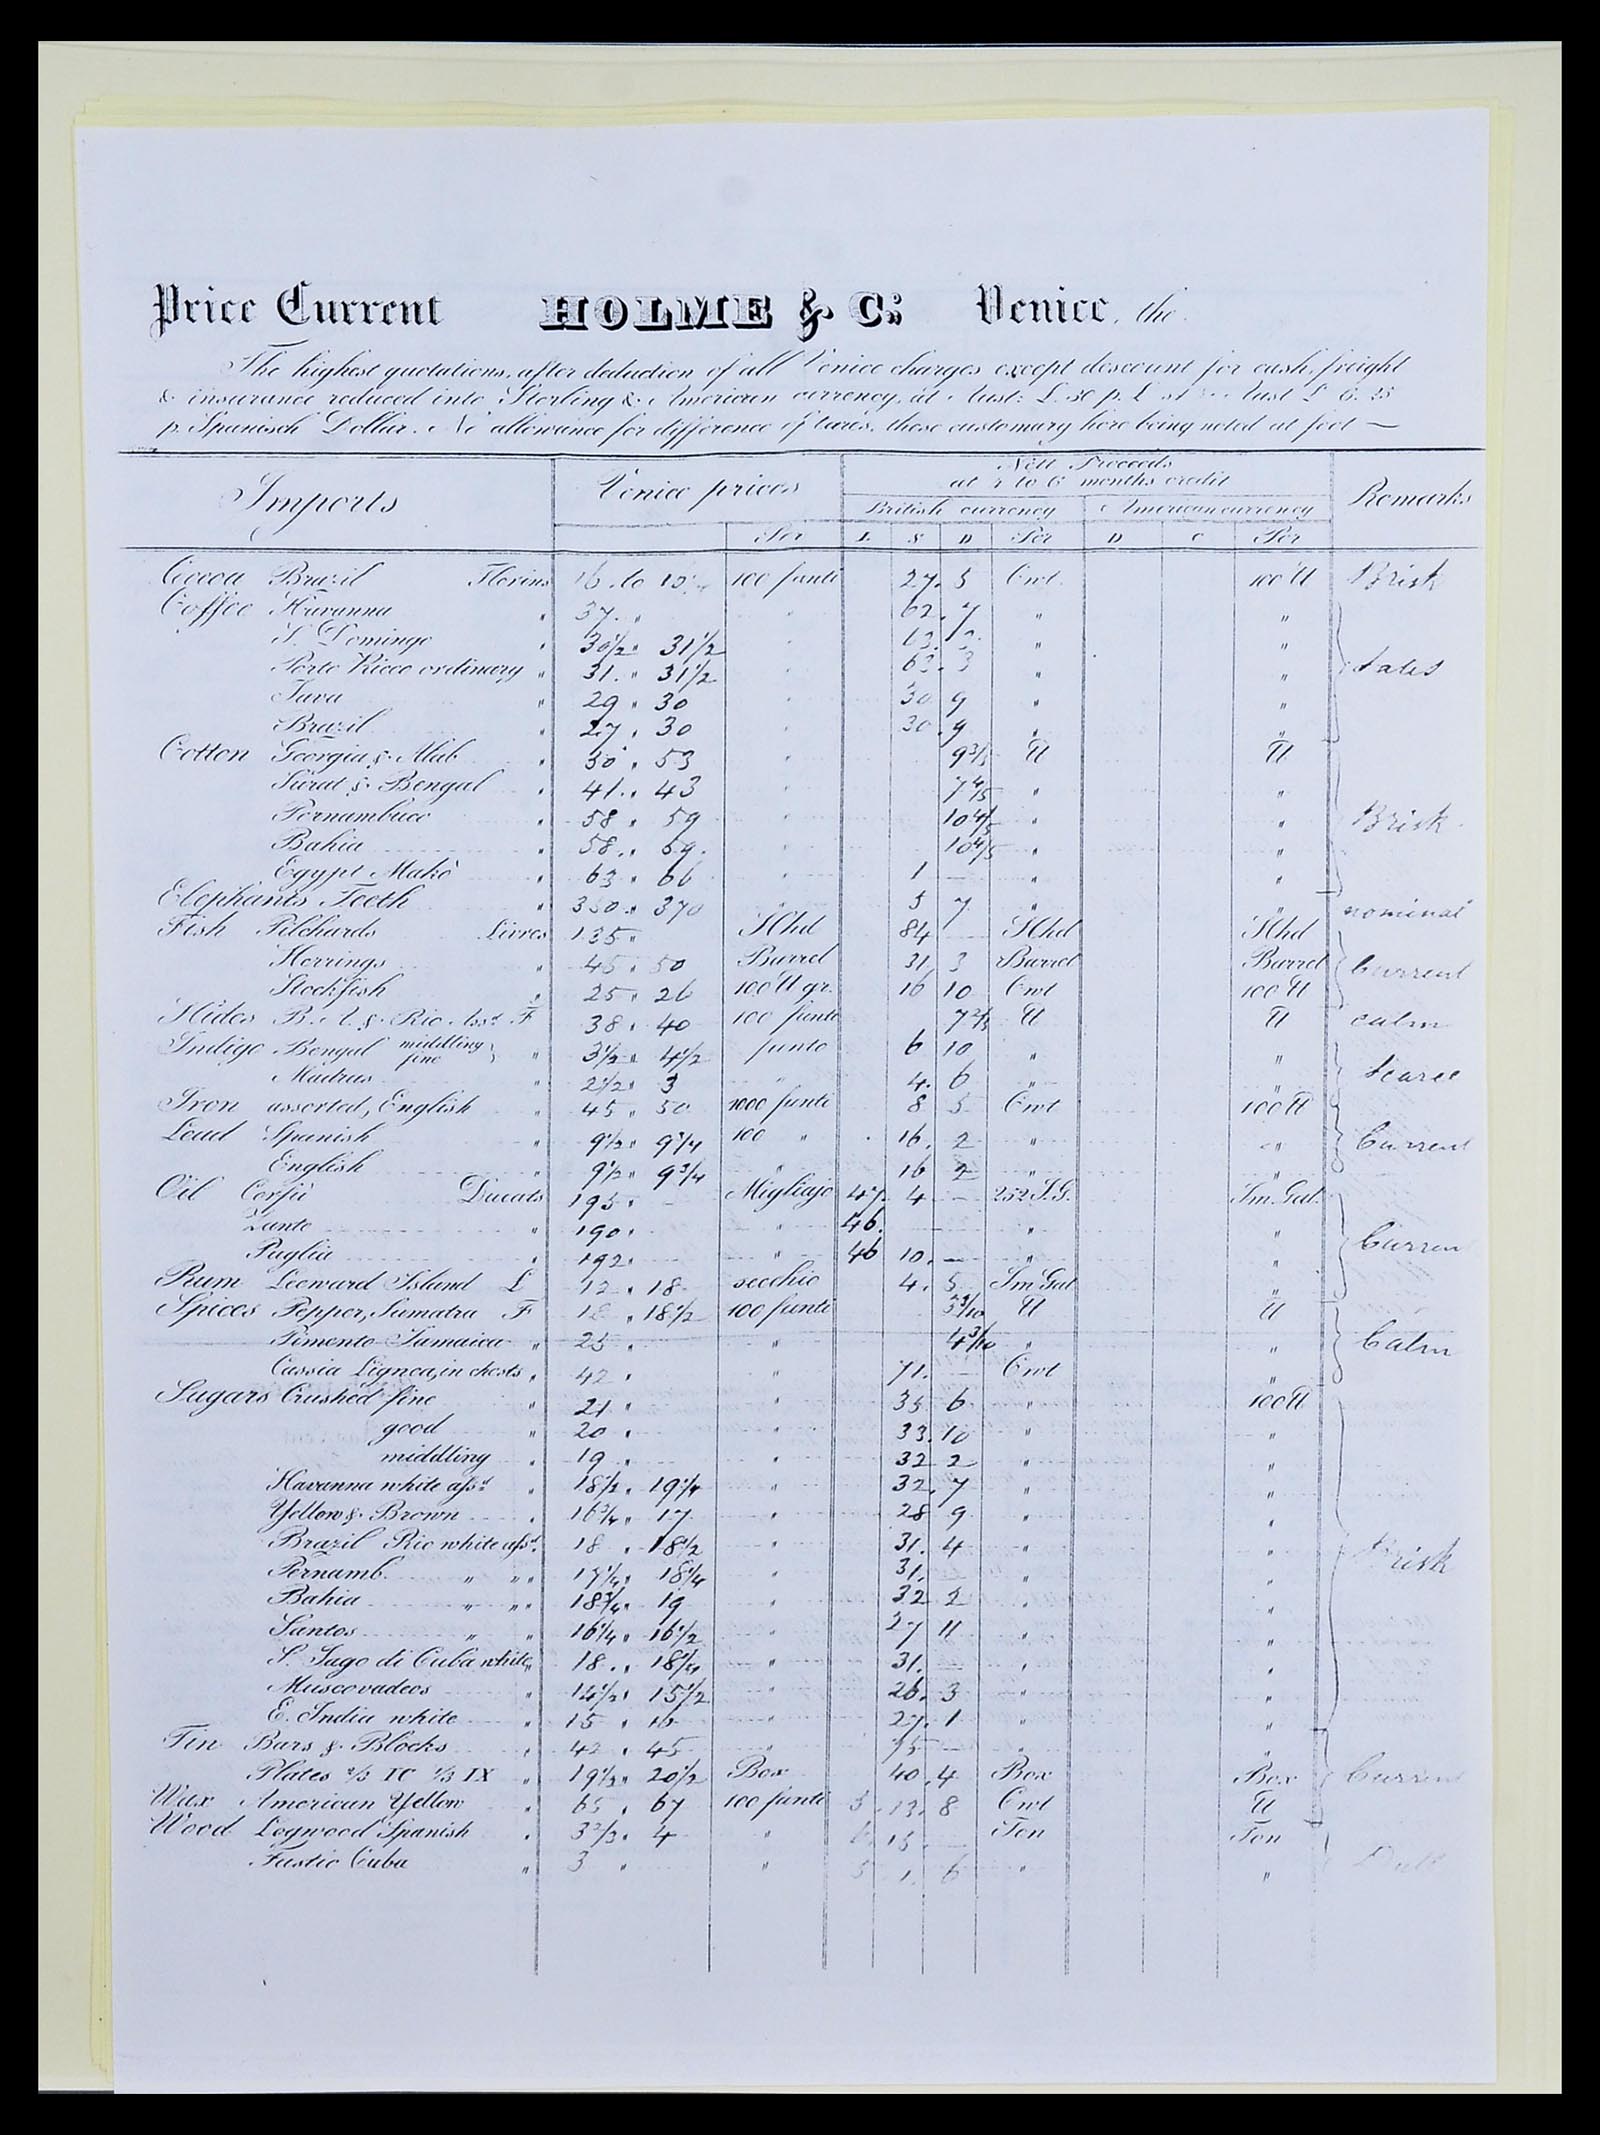 Price Current HOLME & C.o Venice, the
The highest quotations, after deduction of all Venice charges except descount for cash, freight
& insurance reduced into Sterling & American currency, at Aust: L. 30 p. L st & Aust L 6. 25
p. Spanisch Dollar. No allowance for difference of tares, those customary here being noted at foot —
Imports Venice prices Nett Proceeds at to 6 months credit Remarks
British currency American currency
Per L S D Per D C Per
Cocoa Brazil Florins 16 . to 100 funti 27. 5 Cwt 100 ℔ Brisk
Coffee Havanna " 37. " " 62. 7 " "
S. Domingo " 30 1/2 " 31 1/2 " " "
Porto Ricco ordinary " 31. " 31 1/2 " 63. 3 " " Sales
Java " 29 " 30 " 30 9 " "
Brazil " 27 " 30 " 30. 9 " "
Cotton Georgia & Alab " 50 " 53 " ℔ ℔
Surat & Bengal " 41. " 43 " 7 4/5 " "
Pernambuco " 58 " 59 " 10 4/5 " " Brisk
Bahia " 58. " 59. " 10 4/5 " "
Egypt Makò " 63 " 66 " 1 — " "
Elephants Teeth " " 370 " 5 7 " " nominal
Fish Pilchards Livres 135 " Hhd 84 — Hhd Hhd
Herrings " 45 " 50 Barrel 31 3 Barrel Barrel Current
Stockfish " 25 " 26 100 ℔ gr. 16 10 Cwt 100 ℔
Hides B. A. & Rio Ass.d F 38 " 40 100 funti ℔ ℔ calm
Indigo Bengal middling fine } " 3 1/2 " 4 1/2 funto 6 10 " "
Madras " 2 1/2 " 3 " 4. 6 " " Scarce
Iron assorted, English " 45 " 50 1000 funti 8 5 Cwt 100 ℔
Lead Spanish " 9 1/2 " 9 3/4 100 " 16. 2 " " Current
English " 9 1/2 " 9 3/4 " 16 2 " "
Oil Corfù Ducats 195 " — Migliajo 47. 4 — 252 I.G. Im. Gal.
Zante " 190 " " 46. — " "
Puglia " 192 " 46 10. — " " Curren
Rum Leeward Island L 12 " 18 secchio 4. 5 Im Gal "
Spices Pepper, Sumatra F " 18 1/2 100 funti ℔ ℔
Pimento Jamaica " 25 " " 4 3/10 " " Calm
Cassia Lignea, in chests " 42 " " 71. — Cwt "
Sugars Crushed fine " 21 " " 35 6 " 100 ℔
good " 20 " " 33. 10 " "
middling " 19 " " 32 2 " "
Havanna white ass.d " 18 1/2 " 19 1/4 " 32. 7 " "
Yellow & Brown " 16 3/4 " 17 " 28 9 " "
Brazil Rio white ass.d " 18 " 18 1/2 " 31. 4 " " Brisk
Pernamb. " " " 17 1/4 " 18 1/4 " 31. " "
Bahia " " " 18 3/4 " 19 " 32 2 " "
Santos " " 16 1/4 " 16 1/2 " 27 11 " "
S. Jago di Cuba white " 18. " " 31. — " "
Muscovadoes " 14 1/2 " 15 1/2 " 26. 3 " "
E. India white " 15 " 16 " 27. 1 " "
Tin Bars & Blocks " 42 " 45 " 75 — " "
Plates 2/3 IC 1/3 IX " 19 1/2 " 20 1/2 Box 40. 4 Box Box Curren
Wax American Yellow " 65 " 67 100 funti 5. 13. 8 Cwt ℔
Wood Logwood Spanish " " 4 " 6. 15. — Ton Ton
Fustic Cuba " 3 " " 5 1. 6 " " Dull